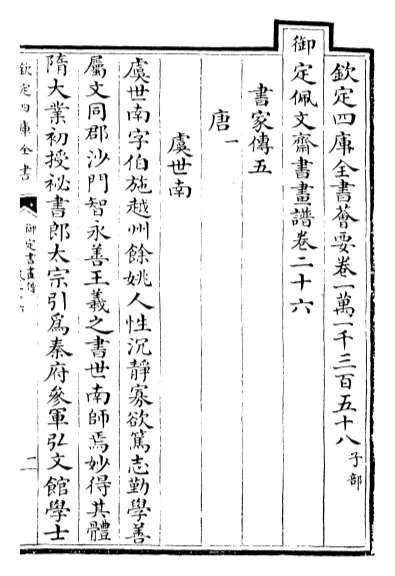 欽定四庫全書薈要卷一萬一千三百五十八子部
御定佩文齋書畫譜卷二十六
書家傳五
唐一
虞世南
虞世南字伯施越州餘姚人性沉靜寡欲篤志勤學善
屬文同郡沙門智永善王羲之書世南師焉妙得其體
隋大業初授祕書郎太宗引為秦府參軍弘文館學士
欽定四庫全書
御定書畫譜
卷二十六
一